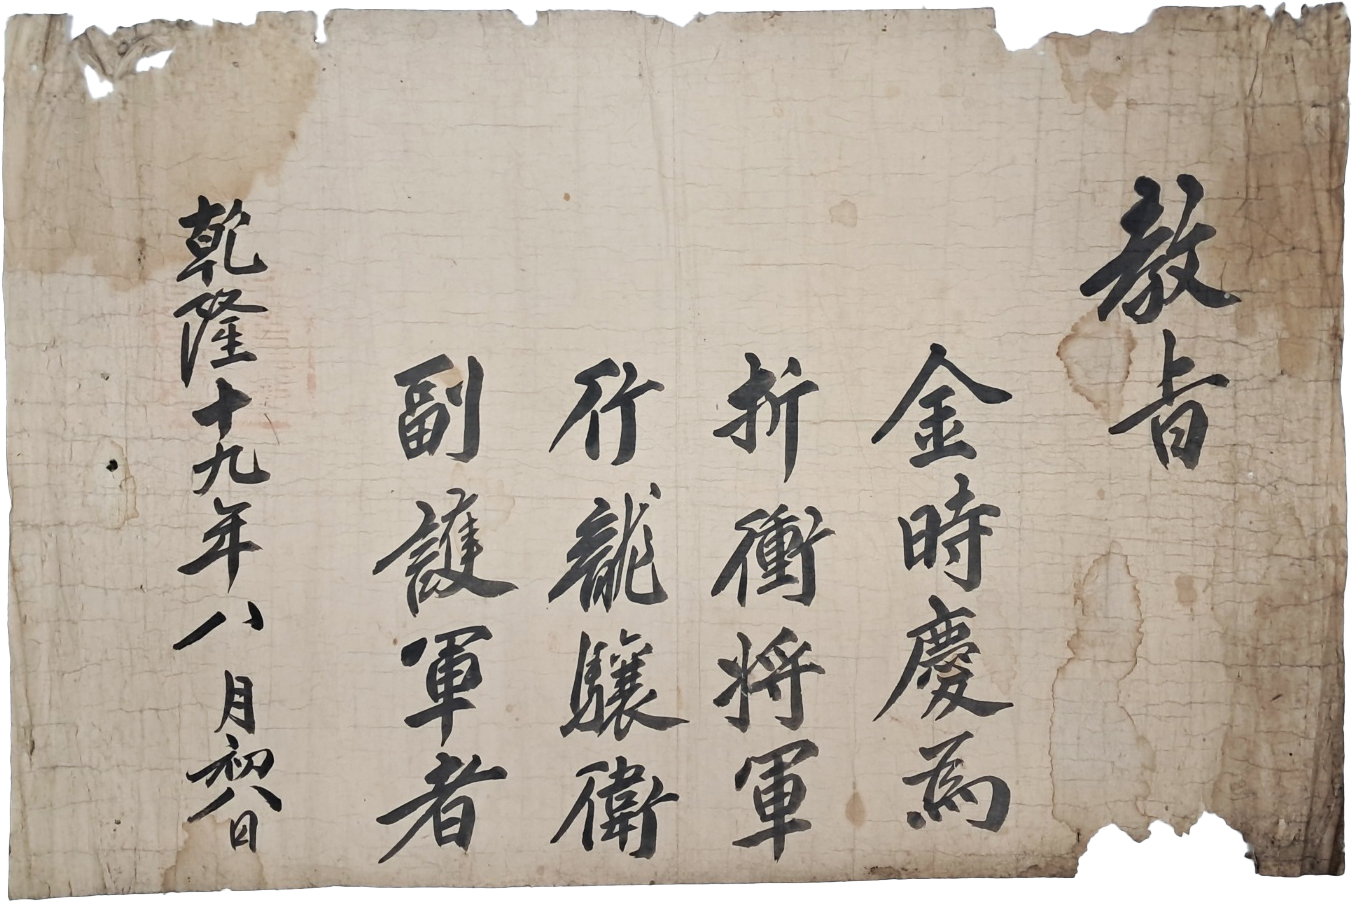 教旨
金時慶為
折衝将軍
行龍驤衛
副護軍者
乾隆十九年八月初八日